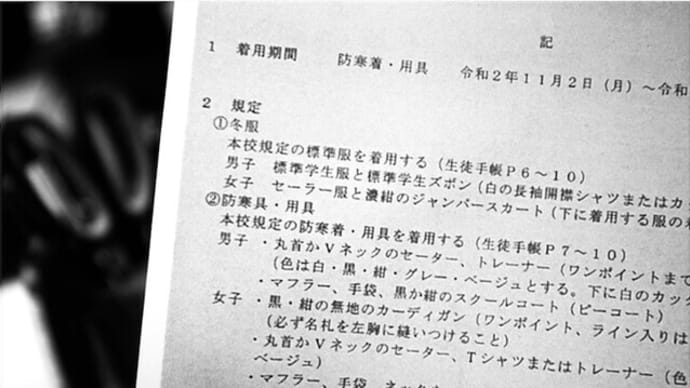 記
1 着用期間 防寒着・用具 令和2年11月2日(月)~令和
2 規定
①冬服
本校規定の標準服を着用する(生徒手帳P6~10)
男子 標準学生服と標準学生ズボン(白の長袖開襟シャツまたはカッ
女子 セーラー服と濃紺のジャンパースカート(下に着用する服の
②防寒具・用具
本校規定の防寒着・用具を着用する(生徒手帳P7~10)
男子 ・丸首かVネックのセーター、トレーナー(ワンポイントまで
(色は白・黒・紺・グレー・ベージュとする。下に白のカッ
・マフラー、手袋、黒か紺のスクールコート(ピーコート)
女子 ・黒・紺の無地のカーディガン(ワンポイント、ライン入りは
(必ず名札を左胸に縫いつけること)
・丸首かVネックのセーター、Tシャツまたはトレーナー(色
ベージュ)
・マフラー、手袋、